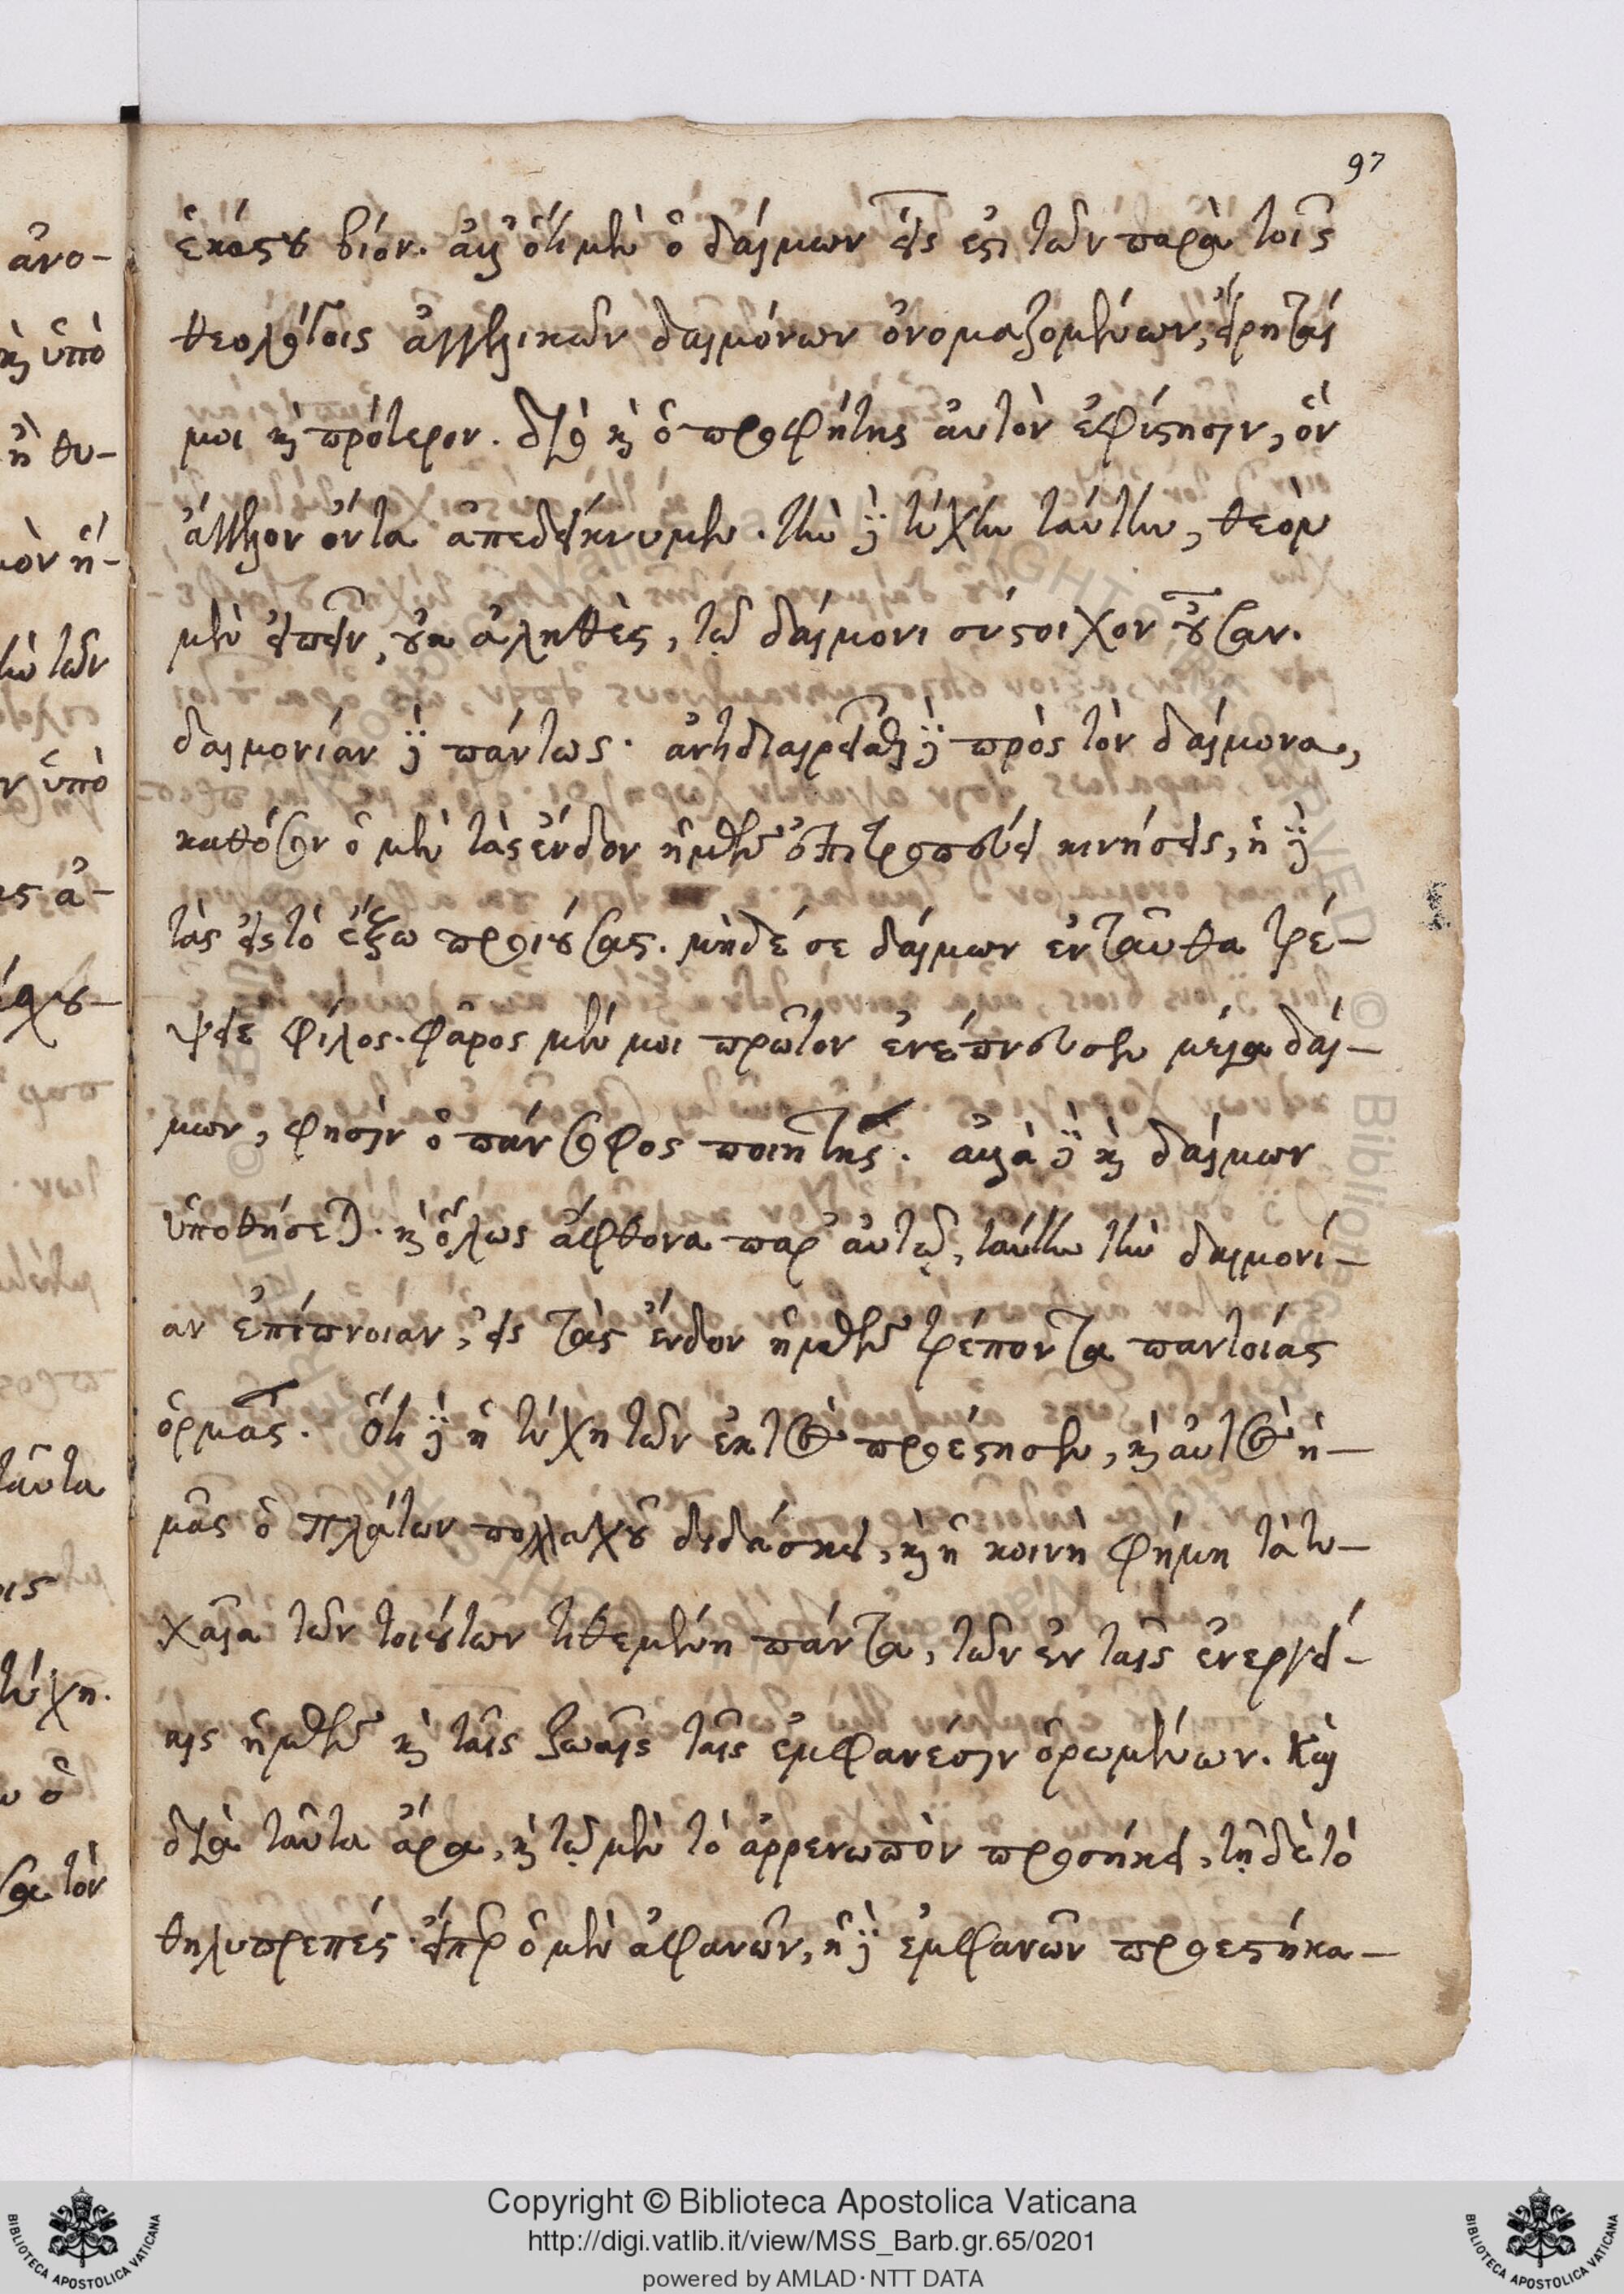 97
ἑκάστου βίον. ἀλλ' ὅτι μὲν ὁ δαίμων εἷς ἐστι τῶν παρὰ τοῖς
θεολόγοις ἀγγελικῶν δαιμόνων ὀνομαζομένων, εἴρηταί
μοι καὶ πρότερον. διὸ καὶ ὁ προφήτης αὐτὸν ἐφίστησιν, ὃν
ἄγγελον ὄντα ἀπεδείκνυμεν. τὴν δὲ τύχην ταύτην, θεὸν
μὲν εἰπεῖν, οὐκ ἀληθὲς, τῷ δαίμονι σύστοιχον οὖσαν.
δαιμονίαν δὲ πάντως. ἀντιδιαιρεῖται δὲ πρὸς τὸν δαίμονα,
καθόσον ὁ μὲν τὰς ἔνδον ἡμῶν ἐπιτροπεύει κινήσεις, ἡ δὲ
τὰς εἰς τὸ ἔξω προιούσας. μηδέ σε δαίμων ἐνταῦθα τρέ-
ψειε φίλος. φᾶρος μέν μοι πρῶτον ἐνέπνευσεν μέγα δαί-
μων, φησὶν ὁ πάνσοφος ποιητής. ἀλλὰ δὲ καὶ δαίμων
ὑποθήσεται. καὶ ὅλως ἄφθονα παρ' αὐτῷ, ταύτην τὴν δαιμονί-
αν ἐπίπνοιαν, εἰς τὰς ἔνδον ἡμῶν τρέποντα παντοίας
ὁρμάς. Ὅτι δὲ ἡ τύχη τῶν ἐκτὸς προέστησεν, καὶ αὐτὸς ἡ-
μᾶς ὁ πλάτων πολλαχοῦ διδάσκει, καὶ ἡ κοινὴ φήμη τὰ τυ-
χαῖα τῶν τοιούτων τιθεμένη πάντα, τῶν ἐν ταῖς ἐνεργεί-
αις ἡμῶν καὶ ταῖς ζωαῖς ταῖς ἐμφανέσιν ὁρωμένων. Καὶ
διὰ ταῦτα ἄρα, καὶ τῷ μὲν τὸ ἀρρενωπὸν προσήκει, τῇ δὲ τὸ
θηλυπρεπές. εἴπερ ὁ μὲν ἀφανῶν, ἡ δὲ ἐμφανῶν προεστήκα-
ἀνο-
καὶ ὑπὸ
ἢ θυ-
μὸν ἡ-
τὴν τῶν
ν ὑπὸ
ς ἀ-
ταῦτα
ις
τύχη.
ν ὁ
σα τὸν
Copyright © Biblioteca Apostolica Vaticana
http://digi.vatlib.it/view/MSS_Barb.gr.65/0201
powered by AMLAD·NTT DATA
BIBLIOTECA APOSTOLICA VATICANA
BIBLIOTECA APOSTOLICA VATICANA